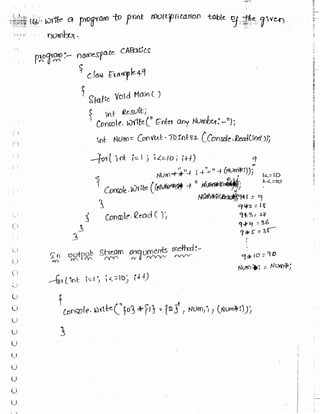 16. Write a program to print multiplication table of the given
number.
program:- namespace CABasics
{
class Example49
{
Static void Main( )
{
int Result;
Console.write(" Enter any Number:-");
int Num= Convert.ToInt32 (Console.ReadLine());
for( int i=1 ; i<=10 ; i++)
{
Console.Write (
}
Console.Read( );
}
}
9*1 = 9
9*2 = 18
9*3 = 27
9*4 = 36
9*5 = 45
9*10 = 90
Num*i = Num*i;
In output Stream arguments method:-
for( int i=1; i<=10; i++)
{
Console.write("{0} * {1} = {2}", Num, i, (Num*i));
}